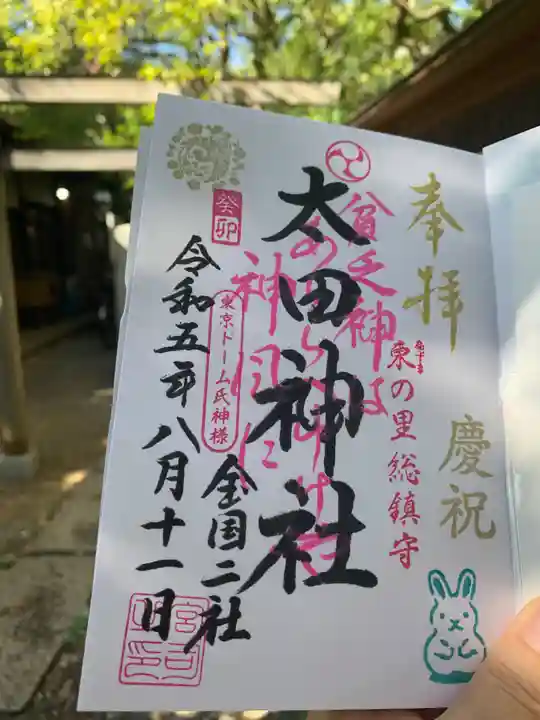 奉拝
慶祝
東の里総鎮守
貧乏神は
あ
神
太田神社
東京ドーム氏神様
全国二社
癸卯
令和五年八月十一日
宮司
之印